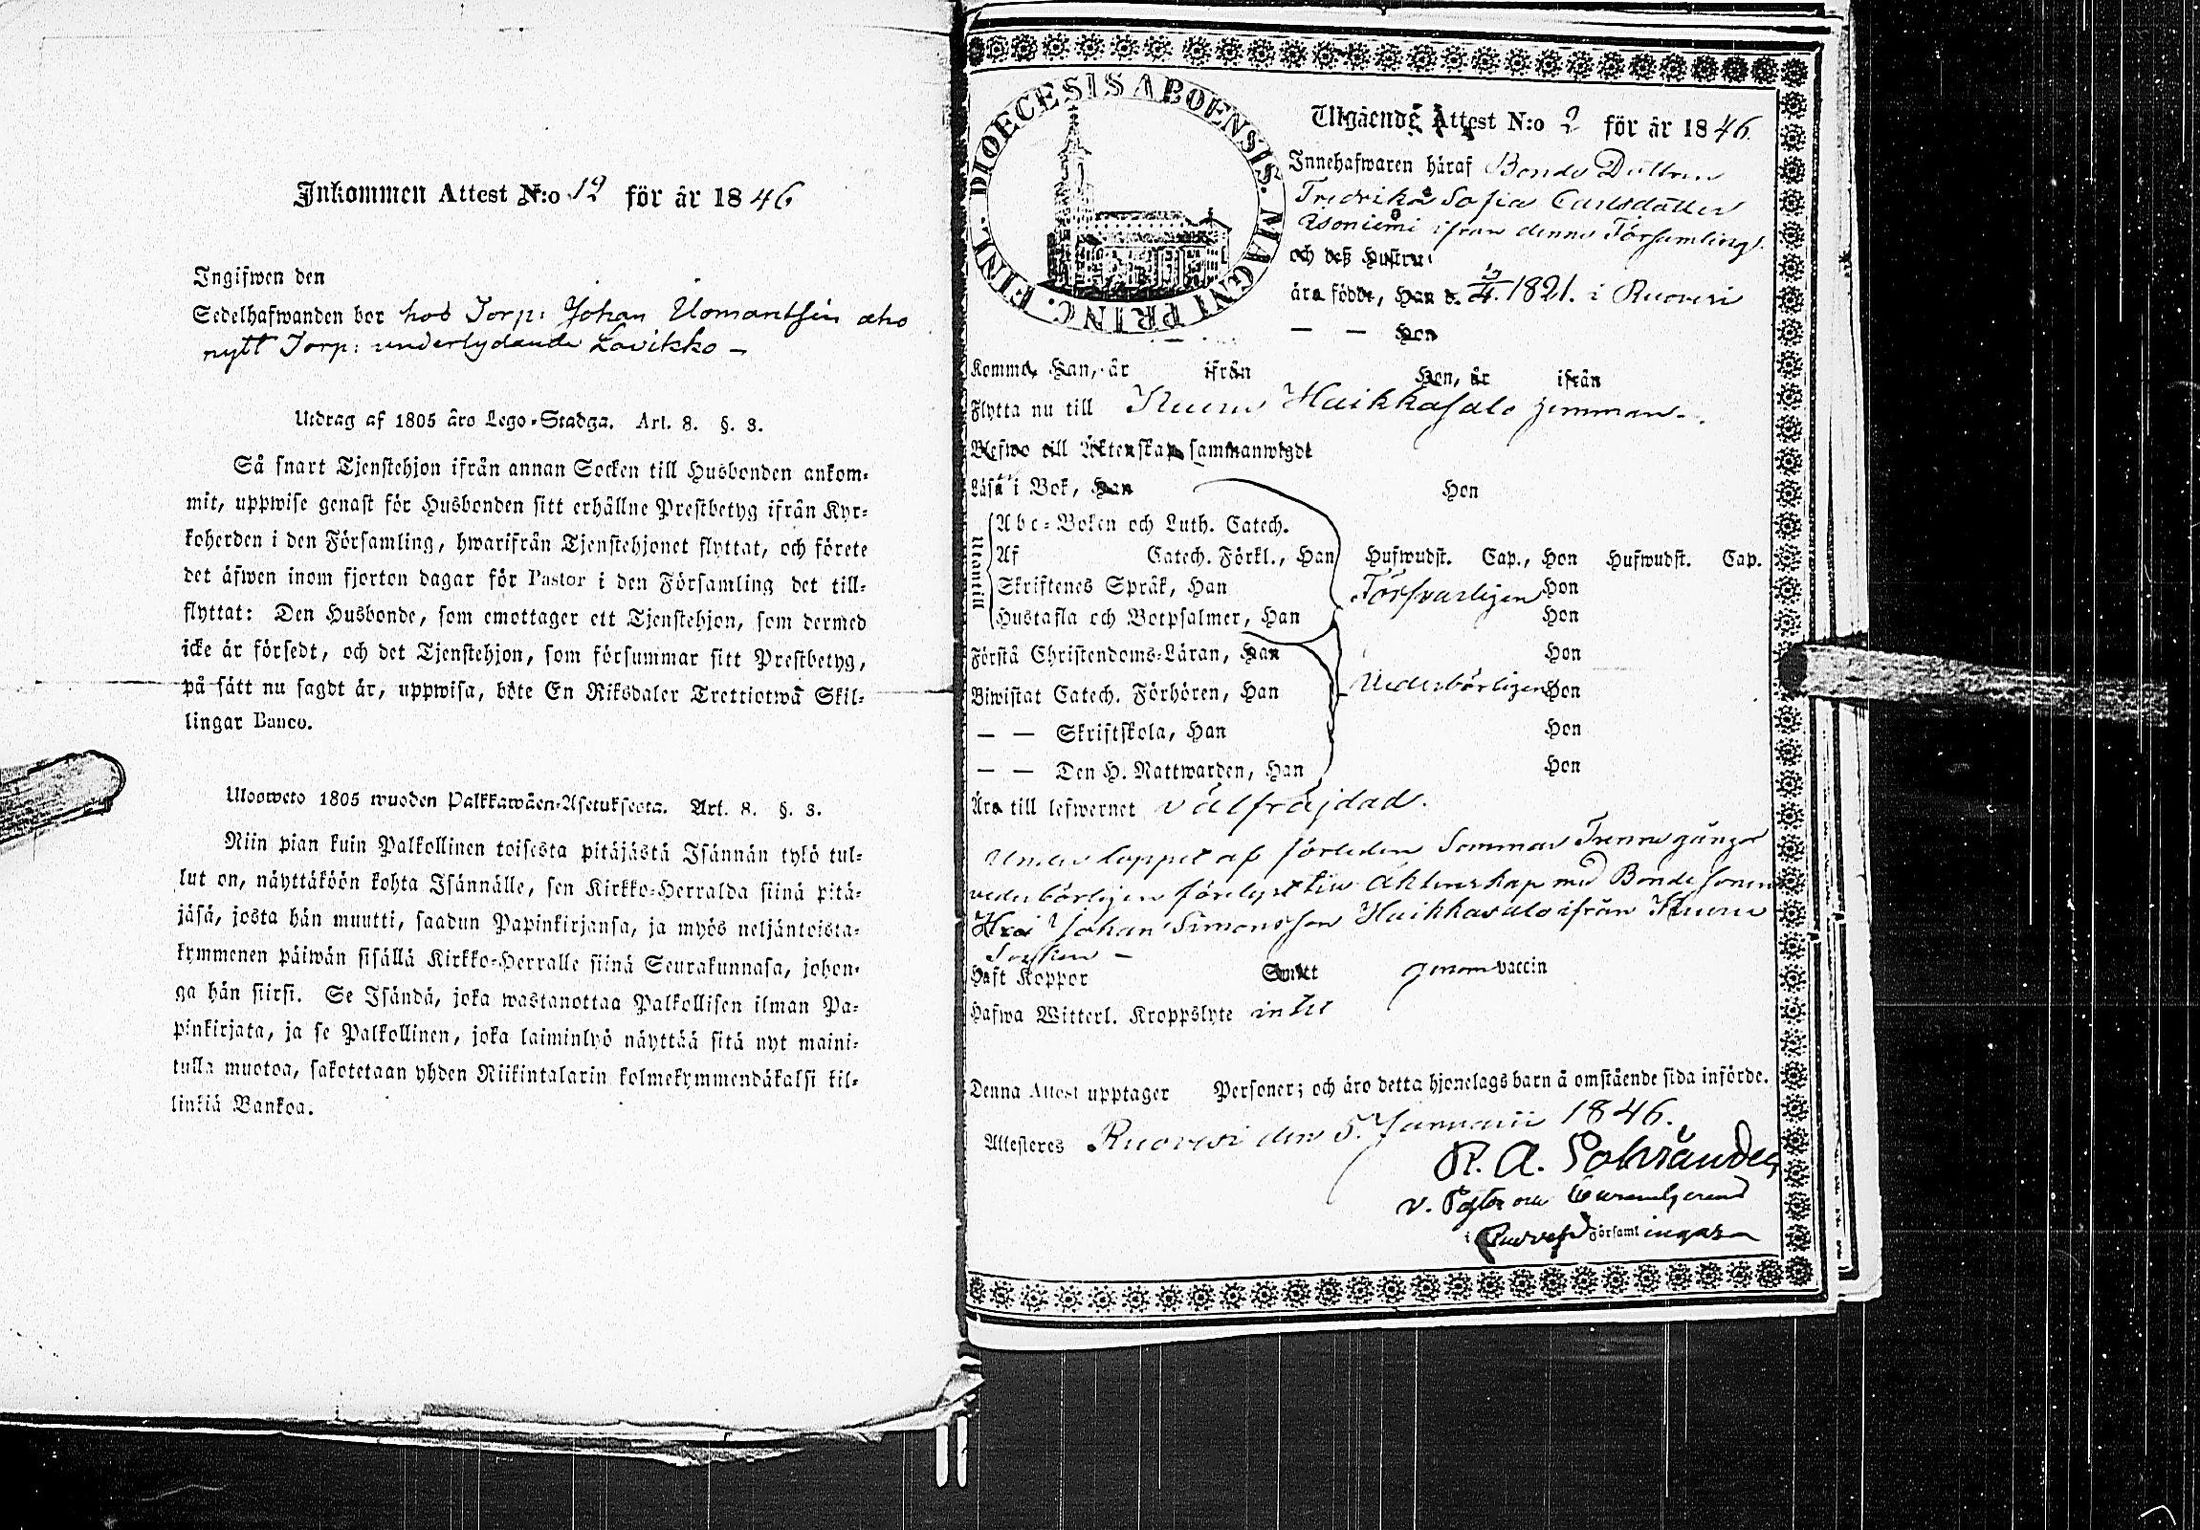 Inkommen Attest N:o 12 för år 1846
Ingifwen den
Sedelhafwanden bor hos Torp: Johan
nytt Torp: underlydande Lavikko –
Utdrag af 1805 års Lego-Stadga. Art. 8. §. 3.
Så snart Tjenstehjon ifrån annan Socken till Husbonden ankom-
mit, uppwise genast för Husbonden sitt erhållne Prestbetyg ifrån Kyr-
koherden i den Församling, hwarifrån Tjenstehjonet flyttat, och förete
det äfwen inom fjorton dagar för Pastor i den Församling det till-
flyttat: Den Husbonde, som emottager ett Tjenstehjon, som dermed
icke är försedt, och det Tjenstehjon, som försummar sitt Prestbetyg,
på sätt nu sagdt är, uppwisa, böte En Riksdaler Trettiotwå Skil-
lingar Banco.
Ulosweto 1805 wuoden Palkkawäen-Asetuksesta. Art. 8. §. 3.
Niin pian kuin Palkollinen toisesta pitäjästä Isännän tykö tul-
lut on, näyttäköön kohta Isännälle, sen Kirkko-Herralda siinä pitä-
jäsä, josta hän muutti, saadun Papinkirjansa, ja myös neljäntoista-
kymmenen päiwän sisällä Kirkko-Herralle siinä Seurakunnasa, johon-
ga hän siirsi. Se Isändä, joka wastanottaa Palkollisen ilman Pa-
pinkirjata, ja se Palkollinen, joka laiminlyö näyttää sitä nyt maini-
tulla muotoa, sakotetaan yhden Riikintalarin kolmekymmendäkaksi kil-
linkiä Bankoa.
DIOECESIS ABOENSIS. MAGNI PRINC. FINL.
Utgående Attest N:o 2 för år 1846.
Innehafwaren häraf Bonde Dottren
Fredrika Sofia Carlsdotter
ifrån denna Församling
och deß Hustru
äro födde, Han d. 19/4. 1821. i Ruovesi
— — Hon
Komme, Han, år ifrån Hon, år ifrån
Flytta nu till Kuru Haikkasalo hemman.
Blefwo till Äktenskap sammanwigde
Läsa i Bok, Han Hon
Utontill
Abc-Boken och Luth. Catech.
Af Catech. Förkl., Han Hufwudst. Cap., Hon Hufwudst. Cap.
Skriftenes Språk, Han Försvarligen Hon
Hustafla och Botpsalmer, Han Hon
Förstå Christendoms-Läran, Han Hon
Biwistat Catech. Förhören, Han Vederbörligen Hon
— — Skriftskola, Han Hon
— — Den H. Nattwarden, Han Hon
Äro till lefwernet välfräjdad.
Under loppet af förleden Sommar Trenne gånger
vederbörligen förelyst till Äktenskap med Bonde Sonen
Johan Simonsson Haikkasalo ifrån Kuru
Socken –
Haft Koppor Smitt genom vaccin
Hafwa Witterl. Kroppslyte intet
Denna Attest upptager Personer; och äro detta hjonelags barn å omstående sida införde.
Attesteres Ruovesi den 5. Januarii 1846.
v. Pastor
i Ruovesi Församlingar